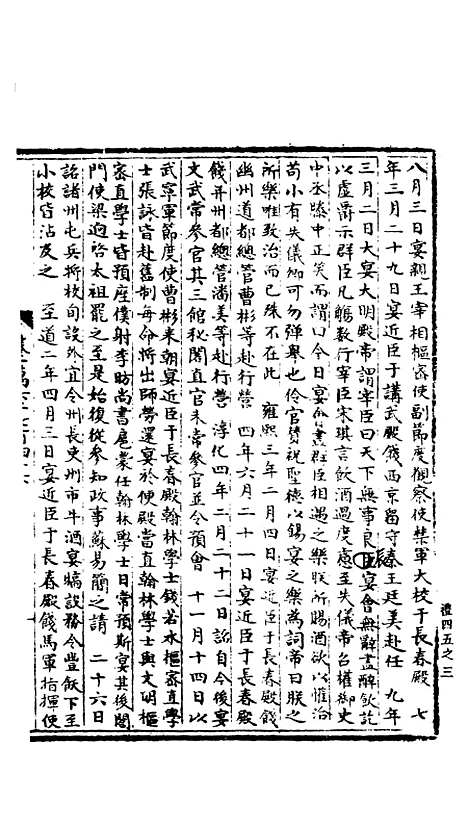 八月三日宴親王宰相樞密使副節度觀察使禁軍大校于長春殿　七
年三月二十九日宴近臣于講武殿餞西京留守秦王廷美赴任　九年
三月二日大宴大明殿帝謂宰臣曰天下無事良臣宴會無辭盡醉飲訖
以虛爵示群臣凡觴數行宰臣宋琪言飲酒過度慮至失儀帝召權御史
中丞滕中正笑而謂曰今日宴會群臣相遇之樂朕所賜酒欲以懽洽
苟小有失儀卿可勿彈舉也伶官贊祝聖德以錫宴之樂為詞帝曰朕之
所樂唯致治而已殊不在此　雍熙三年二月四日宴近臣于長春殿餞
幽州道都總管曹彬等赴行營　四年六月二日宴近臣于長春殿
餞并州都總管潘美等赴行營　淳化四年二月二十二日詔自今後宴
文武常參官其三館秘閣直官未常參官並令預會　十一月十四日以
武寧軍節度使曹彬來朝宴近臣于長春殿翰林學士錢若水樞密直學
士張詠皆赴舊制每命將出師勞還宴於便殿當直翰林學士與文明樞
密直學士皆預座僕射李昉尚書扈蒙任翰林學士日常預斯宴其後閤
門使梁迥啓太祖罷之至是始復從參知政事蘇易簡之請　二十六日
詔諸州屯兵將校旬設外宜令州長吏州市牛酒宴犒設務令豐飫下至
小校皆沾及之　至道二年四月三日宴近臣于長春殿餞馬軍指揮使
禮四五之三